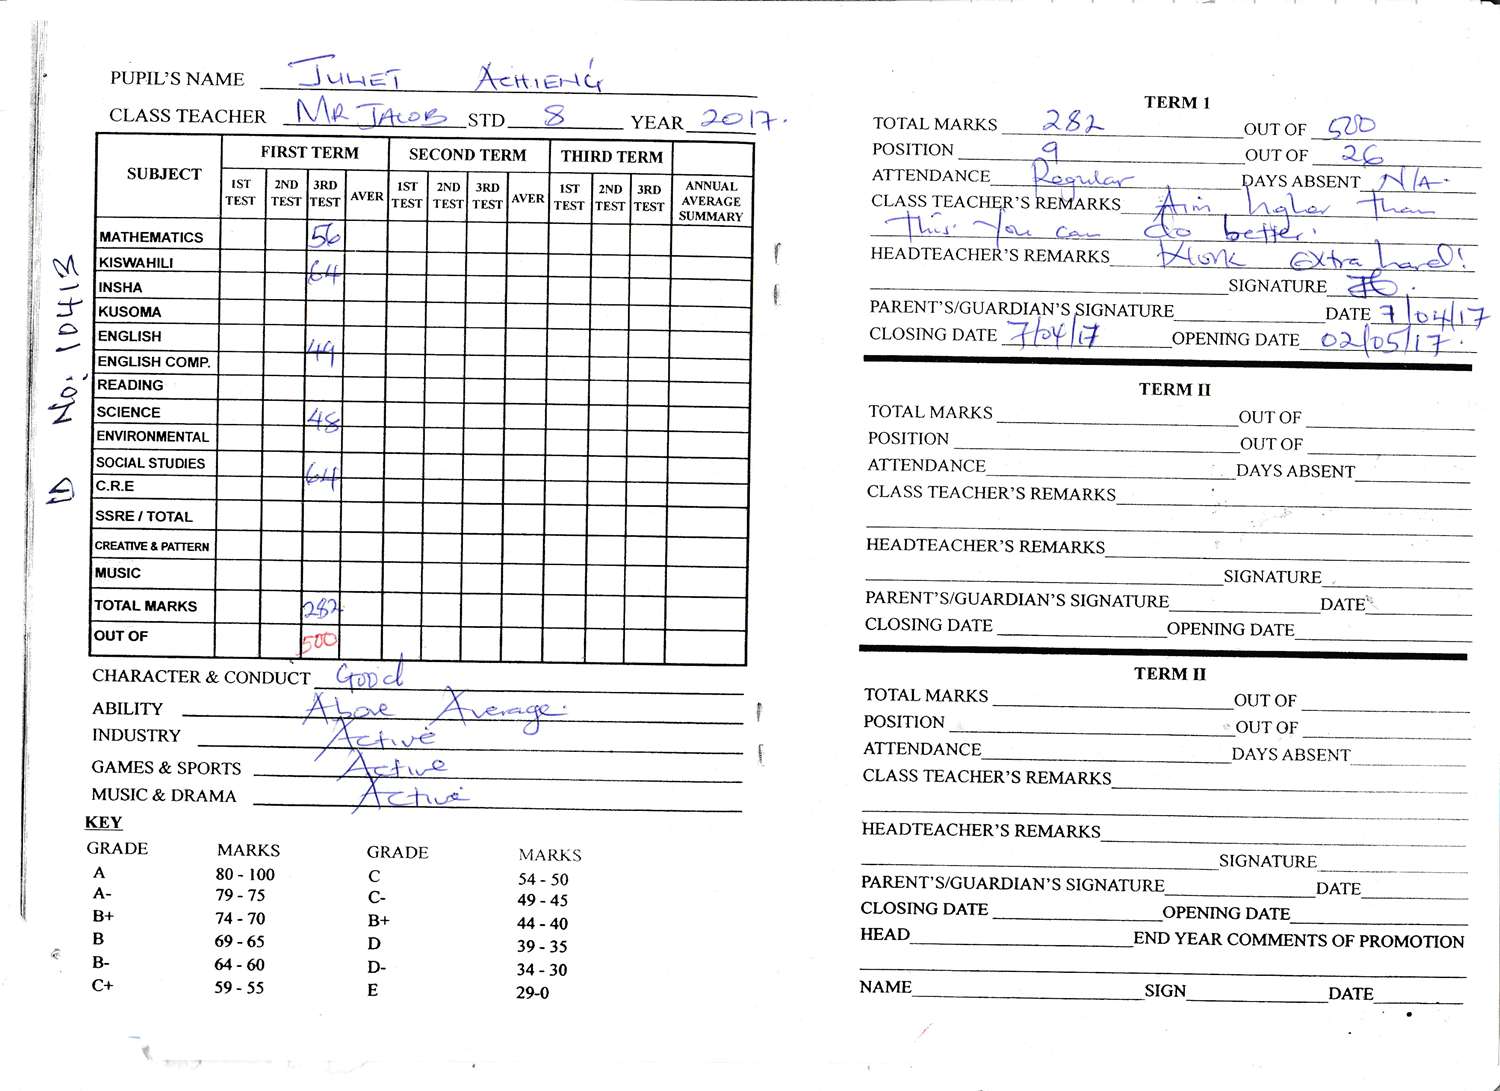 PUPIL'S NAME JULIET ACHIENG
CLASS TEACHER MR JACOB STD 8 YEAR 2017.
SUBJECT FIRST TERM SECOND TERM THIRD TERM
1ST TEST 2ND TEST 3RD TEST AVER 1ST TEST 2ND TEST 3RD TEST AVER 1ST TEST 2ND TEST 3RD TEST ANNUAL AVERAGE SUMMARY
MATHEMATICS 56
KISWAHILI 64
INSHA
KUSOMA
ENGLISH 49
ENGLISH COMP.
READING
SCIENCE 48
ENVIRONMENTAL
SOCIAL STUDIES 64
C.R.E
SSRE / TOTAL
CREATIVE & PATTERN
MUSIC
TOTAL MARKS 282
OUT OF 500
CHARACTER & CONDUCT Good
ABILITY Above Average.
INDUSTRY Active
GAMES & SPORTS Active
MUSIC & DRAMA Active
KEY
GRADE MARKS GRADE MARKS
A 80 - 100 C 54 - 50
A- 79 - 75 C- 49 - 45
B+ 74 - 70 B+ 44 - 40
B 69 - 65 D 39 - 35
B- 64 - 60 D- 34 - 30
C+ 59 - 55 E 29-0
ID No: 10413
TERM 1
TOTAL MARKS 282 OUT OF 500
POSITION 9 OUT OF 26
ATTENDANCE Regular DAYS ABSENT N/A.
CLASS TEACHER'S REMARKS Aim higher than
This. You can do better.
HEADTEACHER'S REMARKS Work extra hard!
SIGNATURE
PARENT'S/GUARDIAN'S SIGNATURE DATE 7/04/17
CLOSING DATE 7/04/17 OPENING DATE 02/05/17.
TERM II
TOTAL MARKS OUT OF
POSITION OUT OF
ATTENDANCE DAYS ABSENT
CLASS TEACHER'S REMARKS
HEADTEACHER'S REMARKS
SIGNATURE
PARENT'S/GUARDIAN'S SIGNATURE DATE
CLOSING DATE OPENING DATE
TERM II
TOTAL MARKS OUT OF
POSITION OUT OF
ATTENDANCE DAYS ABSENT
CLASS TEACHER'S REMARKS
HEADTEACHER'S REMARKS
SIGNATURE
PARENT'S/GUARDIAN'S SIGNATURE DATE
CLOSING DATE OPENING DATE
HEAD END YEAR COMMENTS OF PROMOTION
NAME SIGN DATE